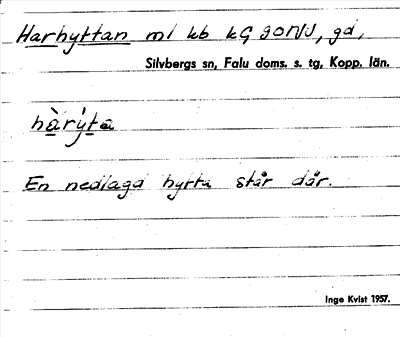 Harhyttan ml kb kG 90NV, gd,
Silvbergs sn, Falu doms. s. tg, Kopp. län.
hàrýta
En nedlagd hytta står där.
Inge Kvist 1957.